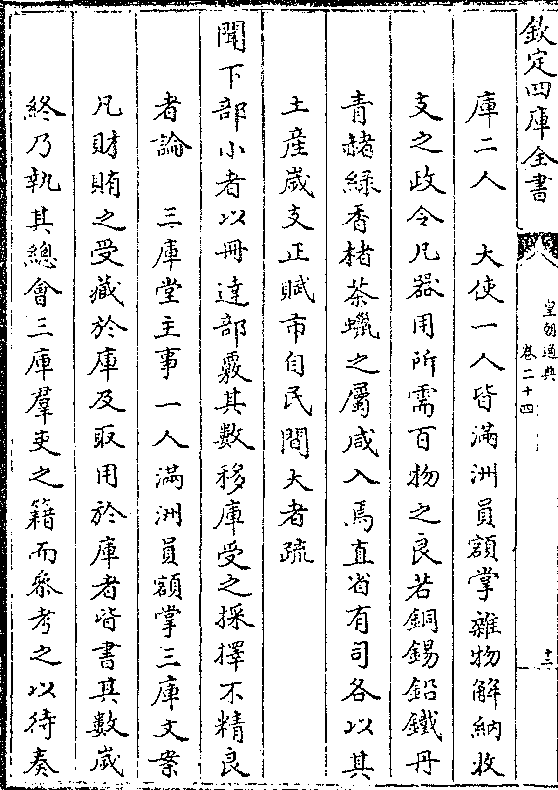 欽定四庫全書
皇朝通典
卷二十四
十三
庫二人　大使一人皆滿洲員額掌雜物解納收
支之政令凡器用所需百物之良若銅錫鉛鐵丹
青赭綠香楮茶蠟之屬咸入焉直省有司各以其
土産歲支正賦市自民間大者疏
聞下部小者以冊達部覈其數移庫受之採擇不精良
者論　三庫堂主事一人滿洲員額掌三庫文案
凡財賄之受藏於庫及取用於庫者皆書其數歲
終乃執其總會三庫羣吏之籍而叅考之以待奏